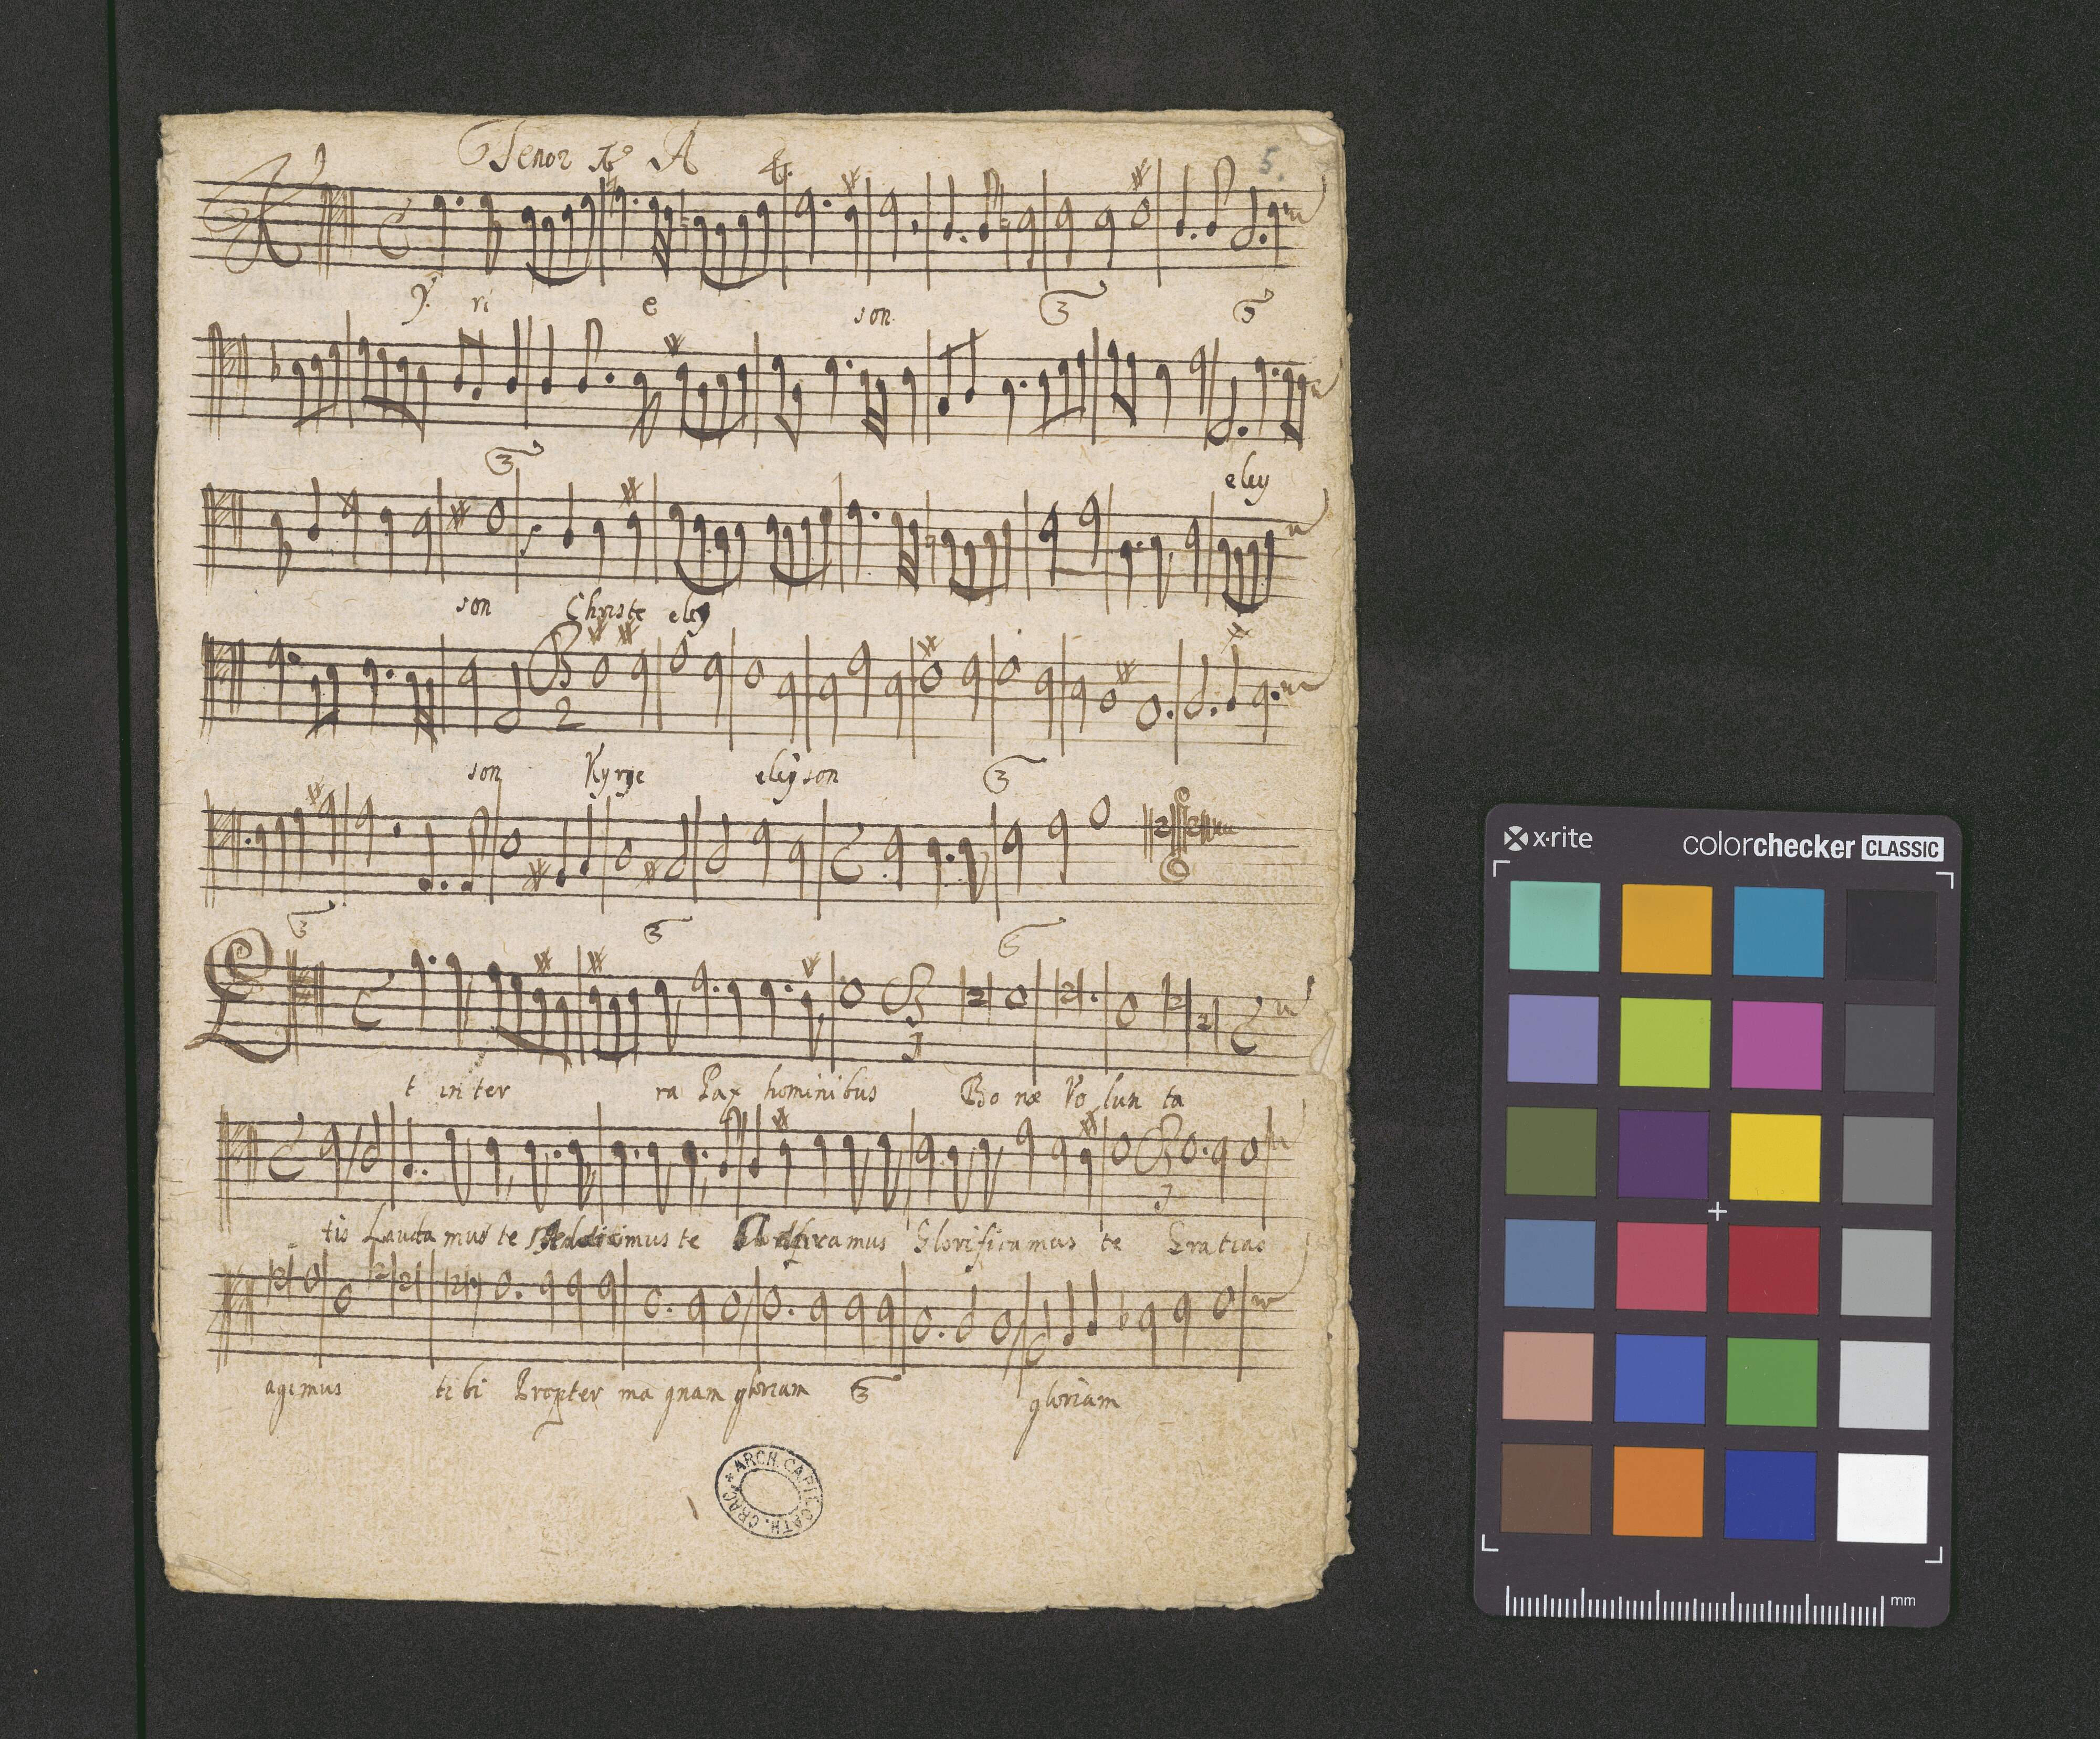 Tenor A 4. 5.
K y. ri e son
eley
son Christe eley
son Kyrye eleyson
Et in ter ra Pax hominibus Bo næ Vo lun ta
tis Lauda mus te mus te mus Glorificamus te Gratias
agimus ti bi Propter ma gnam gloriam gloriam
ARCH. CAPIT. CATH. CRAC.
x·rite colorchecker CLASSIC
mm